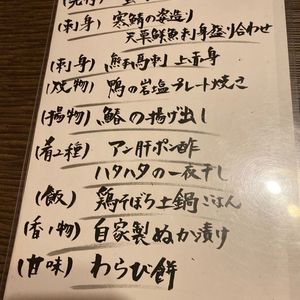 (刺身) 寒鯖の姿造り
天草鮮魚刺身盛り合わせ
(刺身) 熊本馬刺 上赤身
(焼物) 鴨の岩塩プレート焼き
(揚物) 鰆の揚げ出し
(肴二種) アン肝ポン酢
ハタハタの一夜干し
(飯) 鶏そぼろ土鍋ごはん
(香ノ物) 自家製ぬか漬け
(甘味) わらび餅